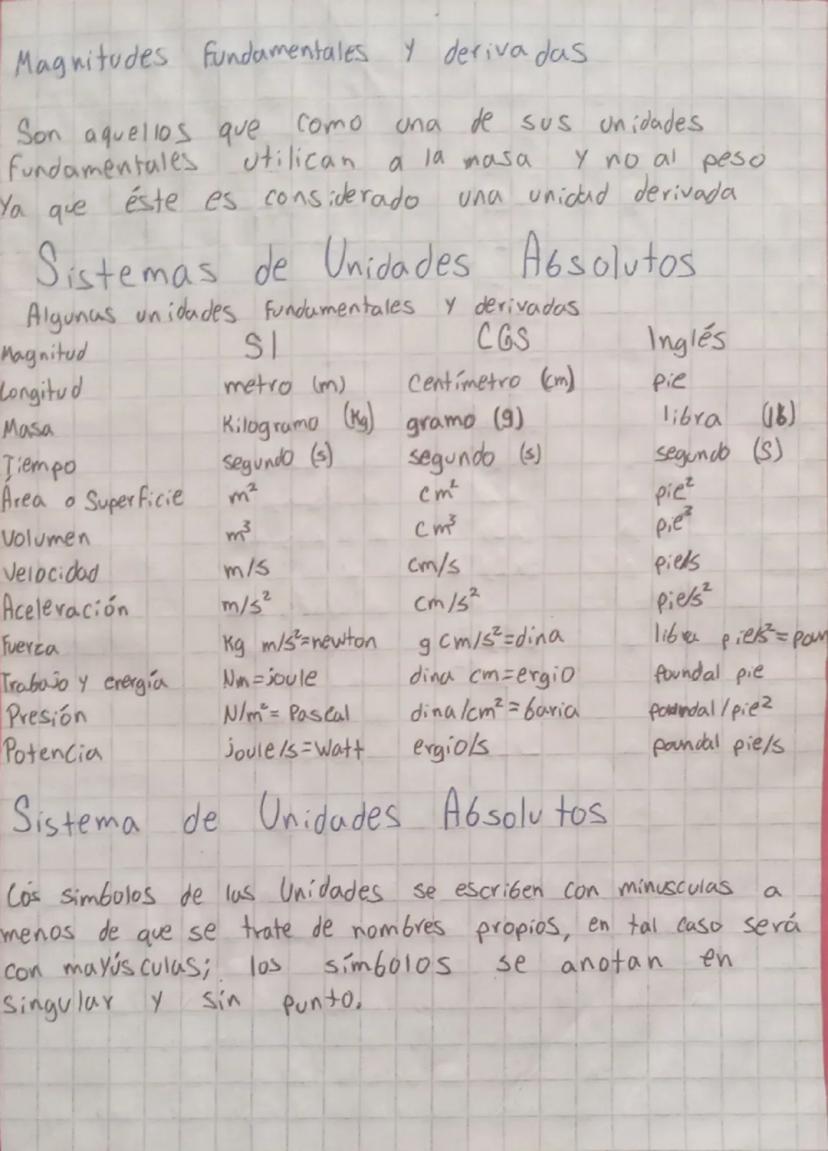 Magnitudes fundamentales y derivadas
Son aquellos que como una de sus unidades
fundamentales utilican a la masa y no al peso
Ya que éste es considerado una unidad derivada
Sistemas de Unidades Absolutos
Algunas unidades fundamentales y derivadas
Magnitud SI CGS Inglés
Longitud metro (m) Centímetro (cm) pie
Masa Kilogramo (Kg) gramo (g) libra (lb)
Tiempo segundo (s) segundo (s) segundo (S)
Área o Superficie m² cm² pie²
Volumen m³ cm³ pie³
Velocidad m/s cm/s pie/s
Aceleración m/s² cm/s² pie/s²
Fuerca Kg m/s²=newton g cm/s²=dina libra pie/s²=poun
Trabajo y energía Nm=joule dina cm=ergio poundal pie
Presión N/m²= Pascal dina/cm²=baria poundal/pie²
Potencia joule/s=Watt ergio/s poundal pie/s
Sistema de Unidades Absolutos
Los simbolos de las Unidades se escriben con minusculas a
menos de que se trate de nombres propios, en tal caso será
con mayúsculas; los símbolos se anotan en
singular y sin punto.